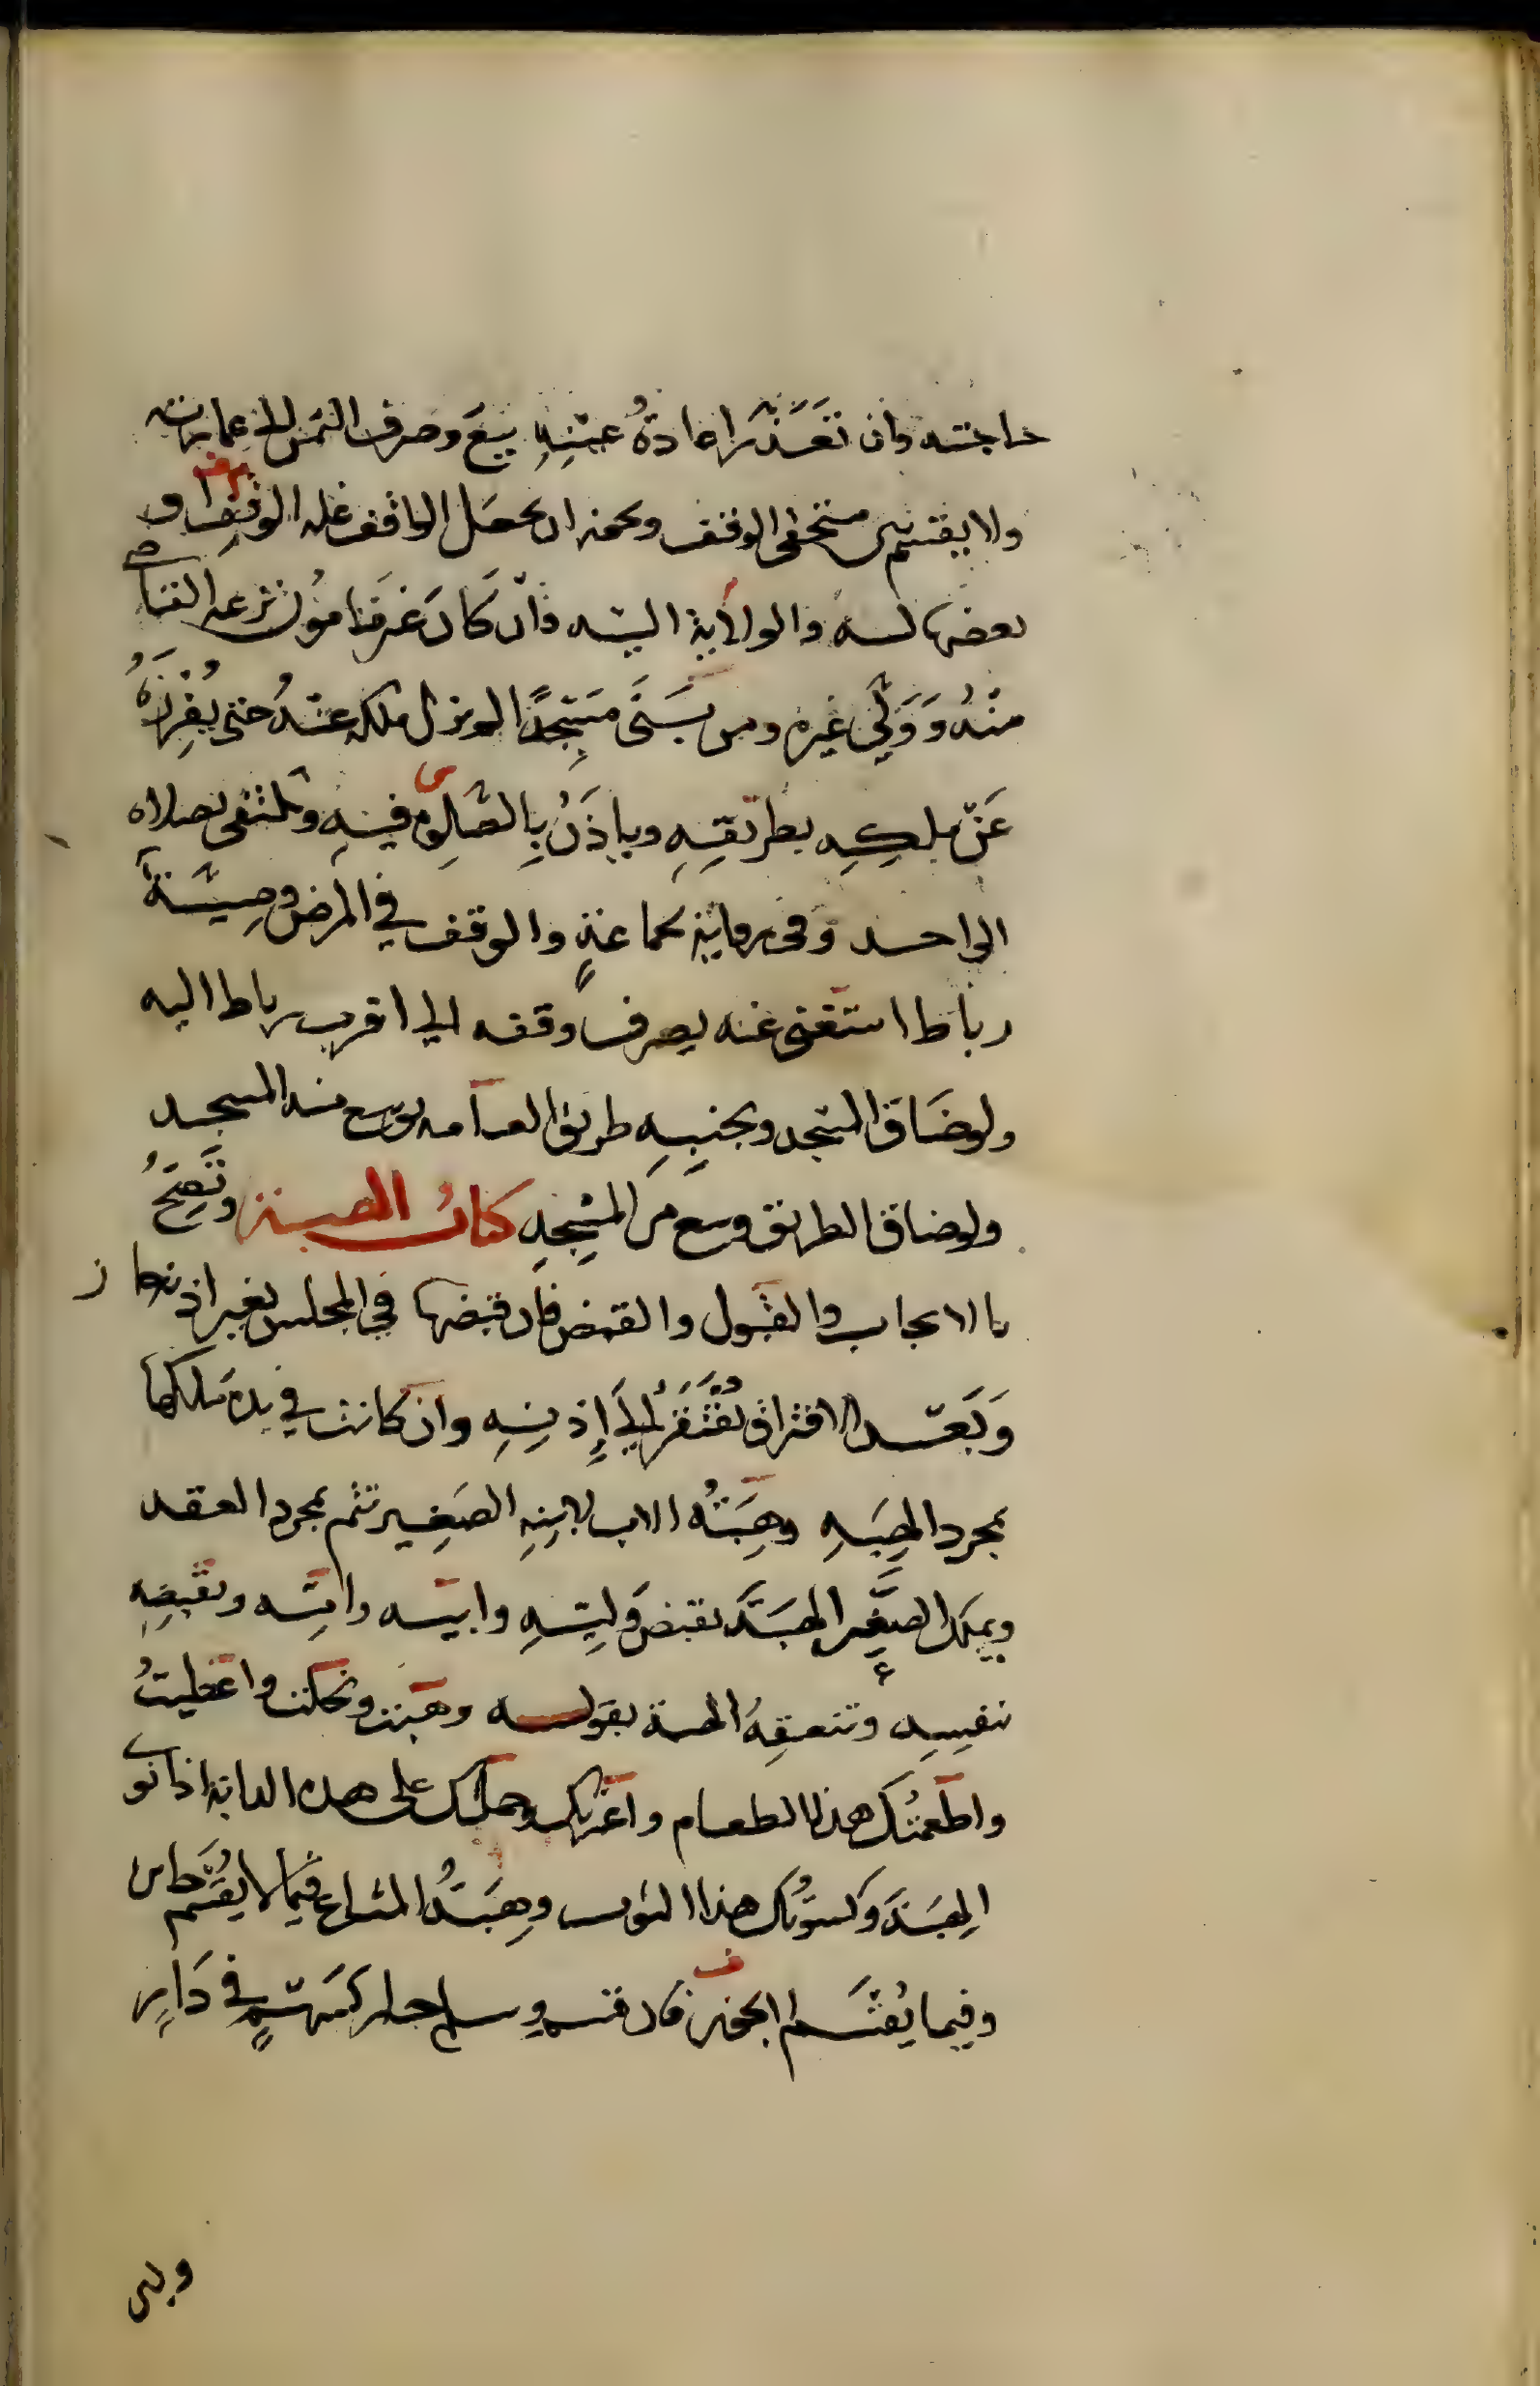 حاجته وان تعذر اعادة عينه بيع وصرف الثمن الى عمارته
ولا يقسم بين مستحقى الوقف ويجوز ان يجعل الواقف غلة الوقف او
بعضها له والولاية اليه فان كان غير مامون نزعه القاضى
منه وولى غيره ومن بنى مسجدا لم يزل ملكه عنه حتى يفرزه
عن ملكه بطريقه وياذن بالصلوة فيه ويكتفى بصلاة
الواحد وفى رواية بجماعة والوقف في المرض وصية
رباط استغنى عنه يصرف وقفه الى اقرب رباط اليه
ولو ضاق المسجد وبجنبه طريق العامه يوسع منه المسجد
ولو ضاق الطريق وسع من المسجد كتاب الهبة وتصح
بالايجاب والقبول والقبض فان قبضها في المجلس بغير اذنه جاز
وبعد الافتراق يفتقر الى إذنه وان كانت في يده ملكها
بمجرد الهبه وهبة الاب لابنه الصغير تتم بمجرد العقد
ويملك الصغير الهبة بقبض وليه وابيه وامه وبقبضه
بنفسه وتنعقد الهبة بقوله وهبت ونحلت واعطيت
واطعمتك هذا الطعام واعمرتك وحملتك على هذه الدابة اذا نوى
الهبة وكسوتك هذا الثوب وهبة المشاع فيما لا يقسم جائز
وفيما يقسم لا يجوز فان قسم وسلم جاز كسهم في دار